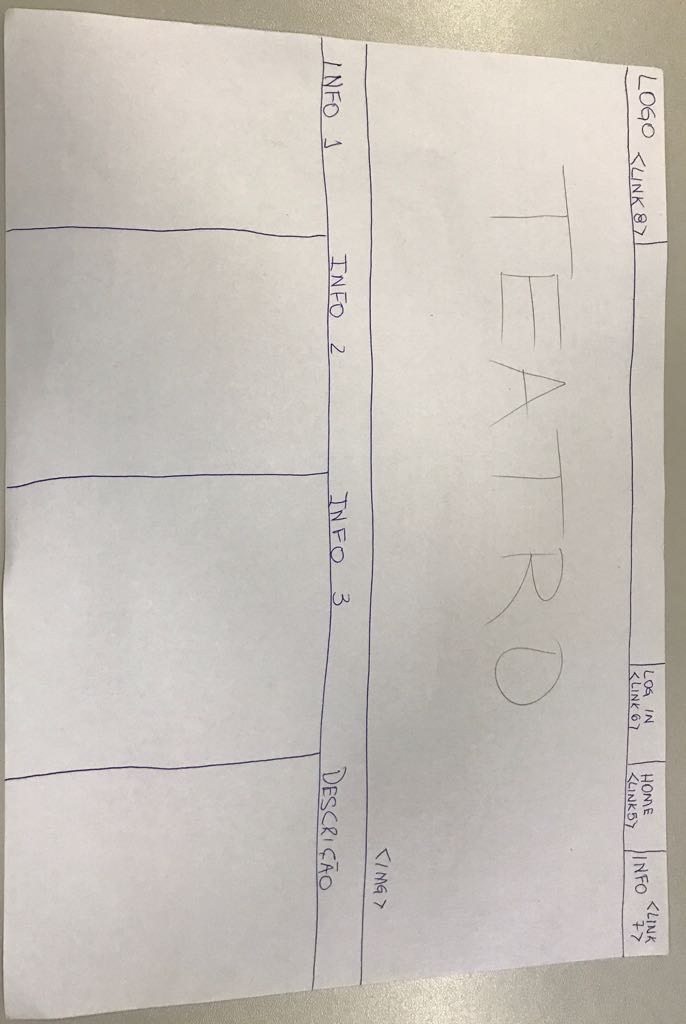 LOGO <LINK 8>
LOG IN
<LINK 6>
HOME
<LINK5>
INFO <LINK
7>
TEATRO
<IMG>
INFO 1
INFO 2
INFO 3
DESCRIÇÃO